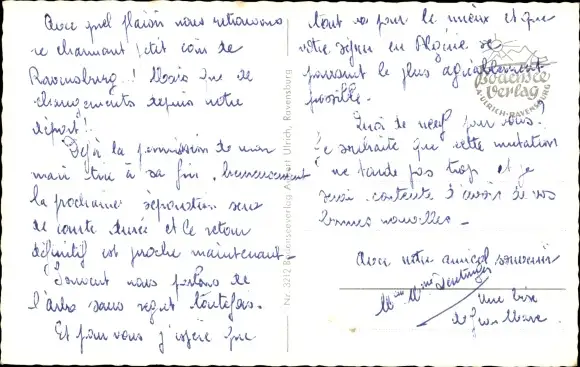 Avec quel plaisir nous retrouvons
ce charmant petit coin de
Ravensburg..! Mais que de
changements depuis notre
départ!.
Déjà la permission de mon
mari tire à sa fin, heureusement
la prochaine séparation sera
de courte durée et le retour
définitif est proche maintenant -
Souvent nous parlons de
l'Arba sans regret toutefois.
Et pour vous j'espère que
tout va pour le mieux et que
votre séjour en Algérie se
poursuit le plus agréablement
possible.
Quoi de neuf pour vous?
Je souhaite que cette mutation
ne tarde pas trop et je
serai contente d'avoir de vos
bonnes nouvelles -
Avec notre amical souvenir
Une bise
Nr. 3212 Bodenseeverlag Albert Ulrich, Ravensburg
Bodensee
Verlag
A. ULRICH · RAVENSBURG